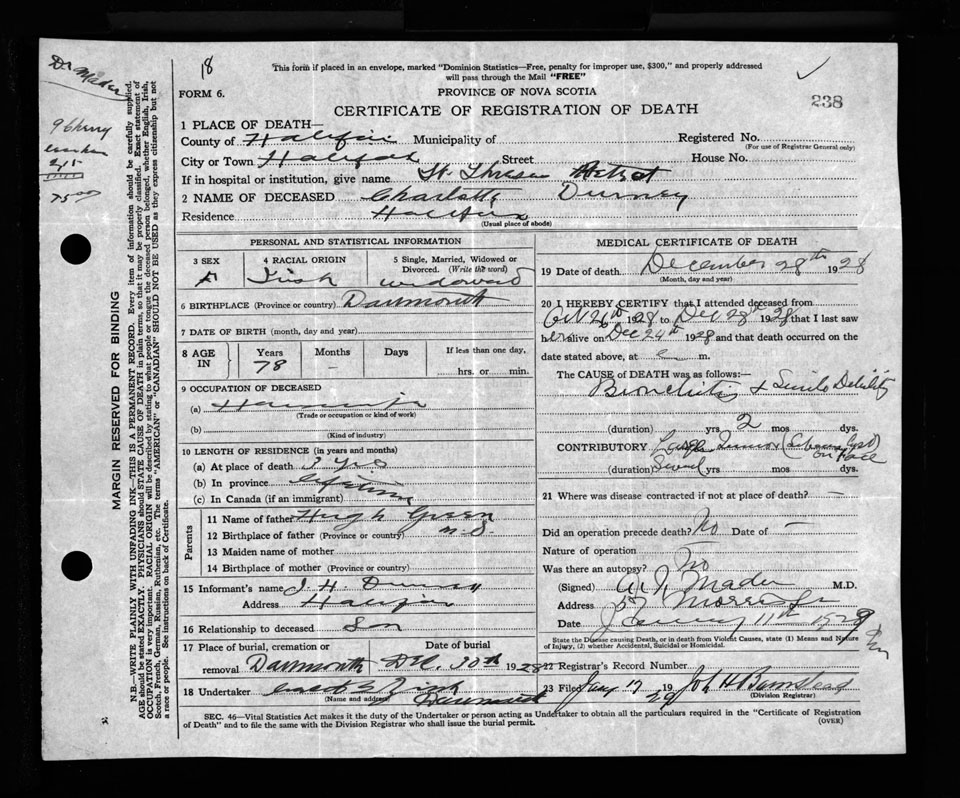 18
This form if placed in an envelope, marked "Dominion Statistics—Free, penalty for improper use, $300," and properly addressed
will pass through the Mail "FREE"
FORM 6.
PROVINCE OF NOVA SCOTIA
238
CERTIFICATE OF REGISTRATION OF DEATH
1 PLACE OF DEATH—
County of Halifax Municipality of Registered No.
(For use of Registrar General only)
City or Town Halifax Street House No.
If in hospital or institution, give name St. Retreat
2 NAME OF DECEASED Charlotte Durney
Residence Halifax
(Usual place of abode)
PERSONAL AND STATISTICAL INFORMATION
3 SEX F
4 RACIAL ORIGIN Irish
5 Single, Married, Widowed or
Divorced. (Write the word)
widowed
6 BIRTHPLACE (Province or country) Dartmouth
7 DATE OF BIRTH (month, day and year)
8 AGE IN Years Months Days If less than one day,
78 – hrs. or min.
9 OCCUPATION OF DECEASED
(a)
(Trade or occupation or kind of work)
(b)
(Kind of industry)
10 LENGTH OF RESIDENCE (in years and months)
(a) At place of death 3 yrs
(b) In province lifetime
(c) In Canada (if an immigrant)
Parents
11 Name of father Hugh Green
12 Birthplace of father (Province or country) N.S.
13 Maiden name of mother
14 Birthplace of mother (Province or country)
15 Informant's name J. H. Durney
Address Halifax
16 Relationship to deceased Son
17 Place of burial, cremation or removal Date of burial
Dartmouth Dec. 30th 1928
18 Undertaker
(Name and address) Dartmouth
MEDICAL CERTIFICATE OF DEATH
19 Date of death December 28th 1928
(Month, day and year)
20 I HEREBY CERTIFY that I attended deceased from
Oct 26th 1928 to Dec 28 1928 that I last saw
her alive on Dec 24th 1928 and that death occurred on the
date stated above, at m.
The CAUSE of DEATH was as follows:—
Bronchitis + Senile Debility
(duration) yrs 2 mos dys.
CONTRIBUTORY Large Tumor (Sebaceous Cyst) on Face
(duration) Several yrs mos dys.
21 Where was disease contracted if not at place of death? –
Did an operation precede death? No Date of –
Nature of operation
Was there an autopsy? No
(Signed) Mader M.D.
Address 57 Morris St
Date January 11th 1929
State the Disease causing Death, or in death from Violent Causes, state (1) Means and Nature
of Injury, (2) whether Accidental, Suicidal or Homicidal.
22 Registrar's Record Number
23 Filed Jany 17 1929 John H Barnstead
(Division Registrar)
SEC. 46—Vital Statistics Act makes it the duty of the Undertaker or person acting as Undertaker to obtain all the particulars required in the "Certificate of Registration
of Death" and to file the same with the Division Registrar who shall issue the burial permit.
(OVER)
MARGIN RESERVED FOR BINDING
N.B.—WRITE PLAINLY WITH UNFADING INK—THIS IS A PERMANENT RECORD. Every item of information should be carefully supplied.
AGE should be stated EXACTLY. PHYSICIANS should STATE CAUSE OF DEATH in plain terms, so that it may be properly classified. Exact statement of
OCCUPATION is very important. RACIAL ORIGIN will be described by stating to what people or tongue the deceased person belonged, whether English, Irish,
Scotch, French, German, Russian, Ruthenian, etc. The terms "AMERICAN" or "CANADIAN" SHOULD NOT BE USED as they express citizenship but not
a race or people. See instructions on back of Certificate.
Dr Mader
9 Cherry
215
7500